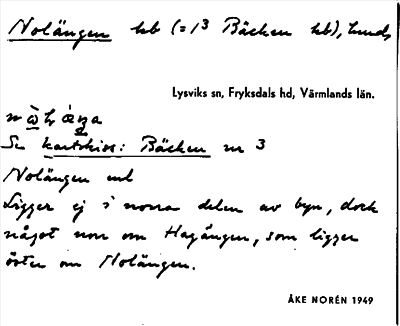 Nolängen hb (= 1³ Bäcken hb), Lunds
Lysviks sn, Fryksdals hd, Värmlands län.
Se kartskiss: Bäcken nr 3
Nolängen enl
Ligger ej i norra delen av byn, dock
något norr om Hagängen, som ligger
öster om Nolängen.
ÅKE NORÉN 1949